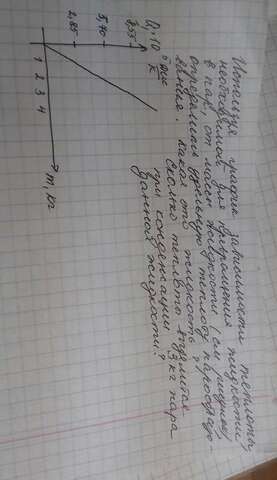 Используя график зависимости теплоты,
необходимой для превращения жидкости
в пар, от массы жидкости (см. рисунок)
определить удельную теплоту парообразо-
вания. Какая это жидкость?
Сколько теплоты выделится
при конденсации 3 кг пара
данной жидкости?
Q, 10⁶ Дж
8,55
5,70
2,85
1 2 3 4
m, кг